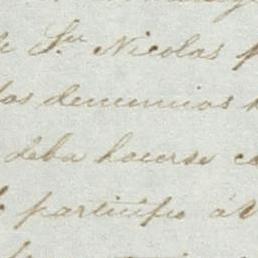 de Sn Nicolas
los denuncios
deba hacerse
participo a V